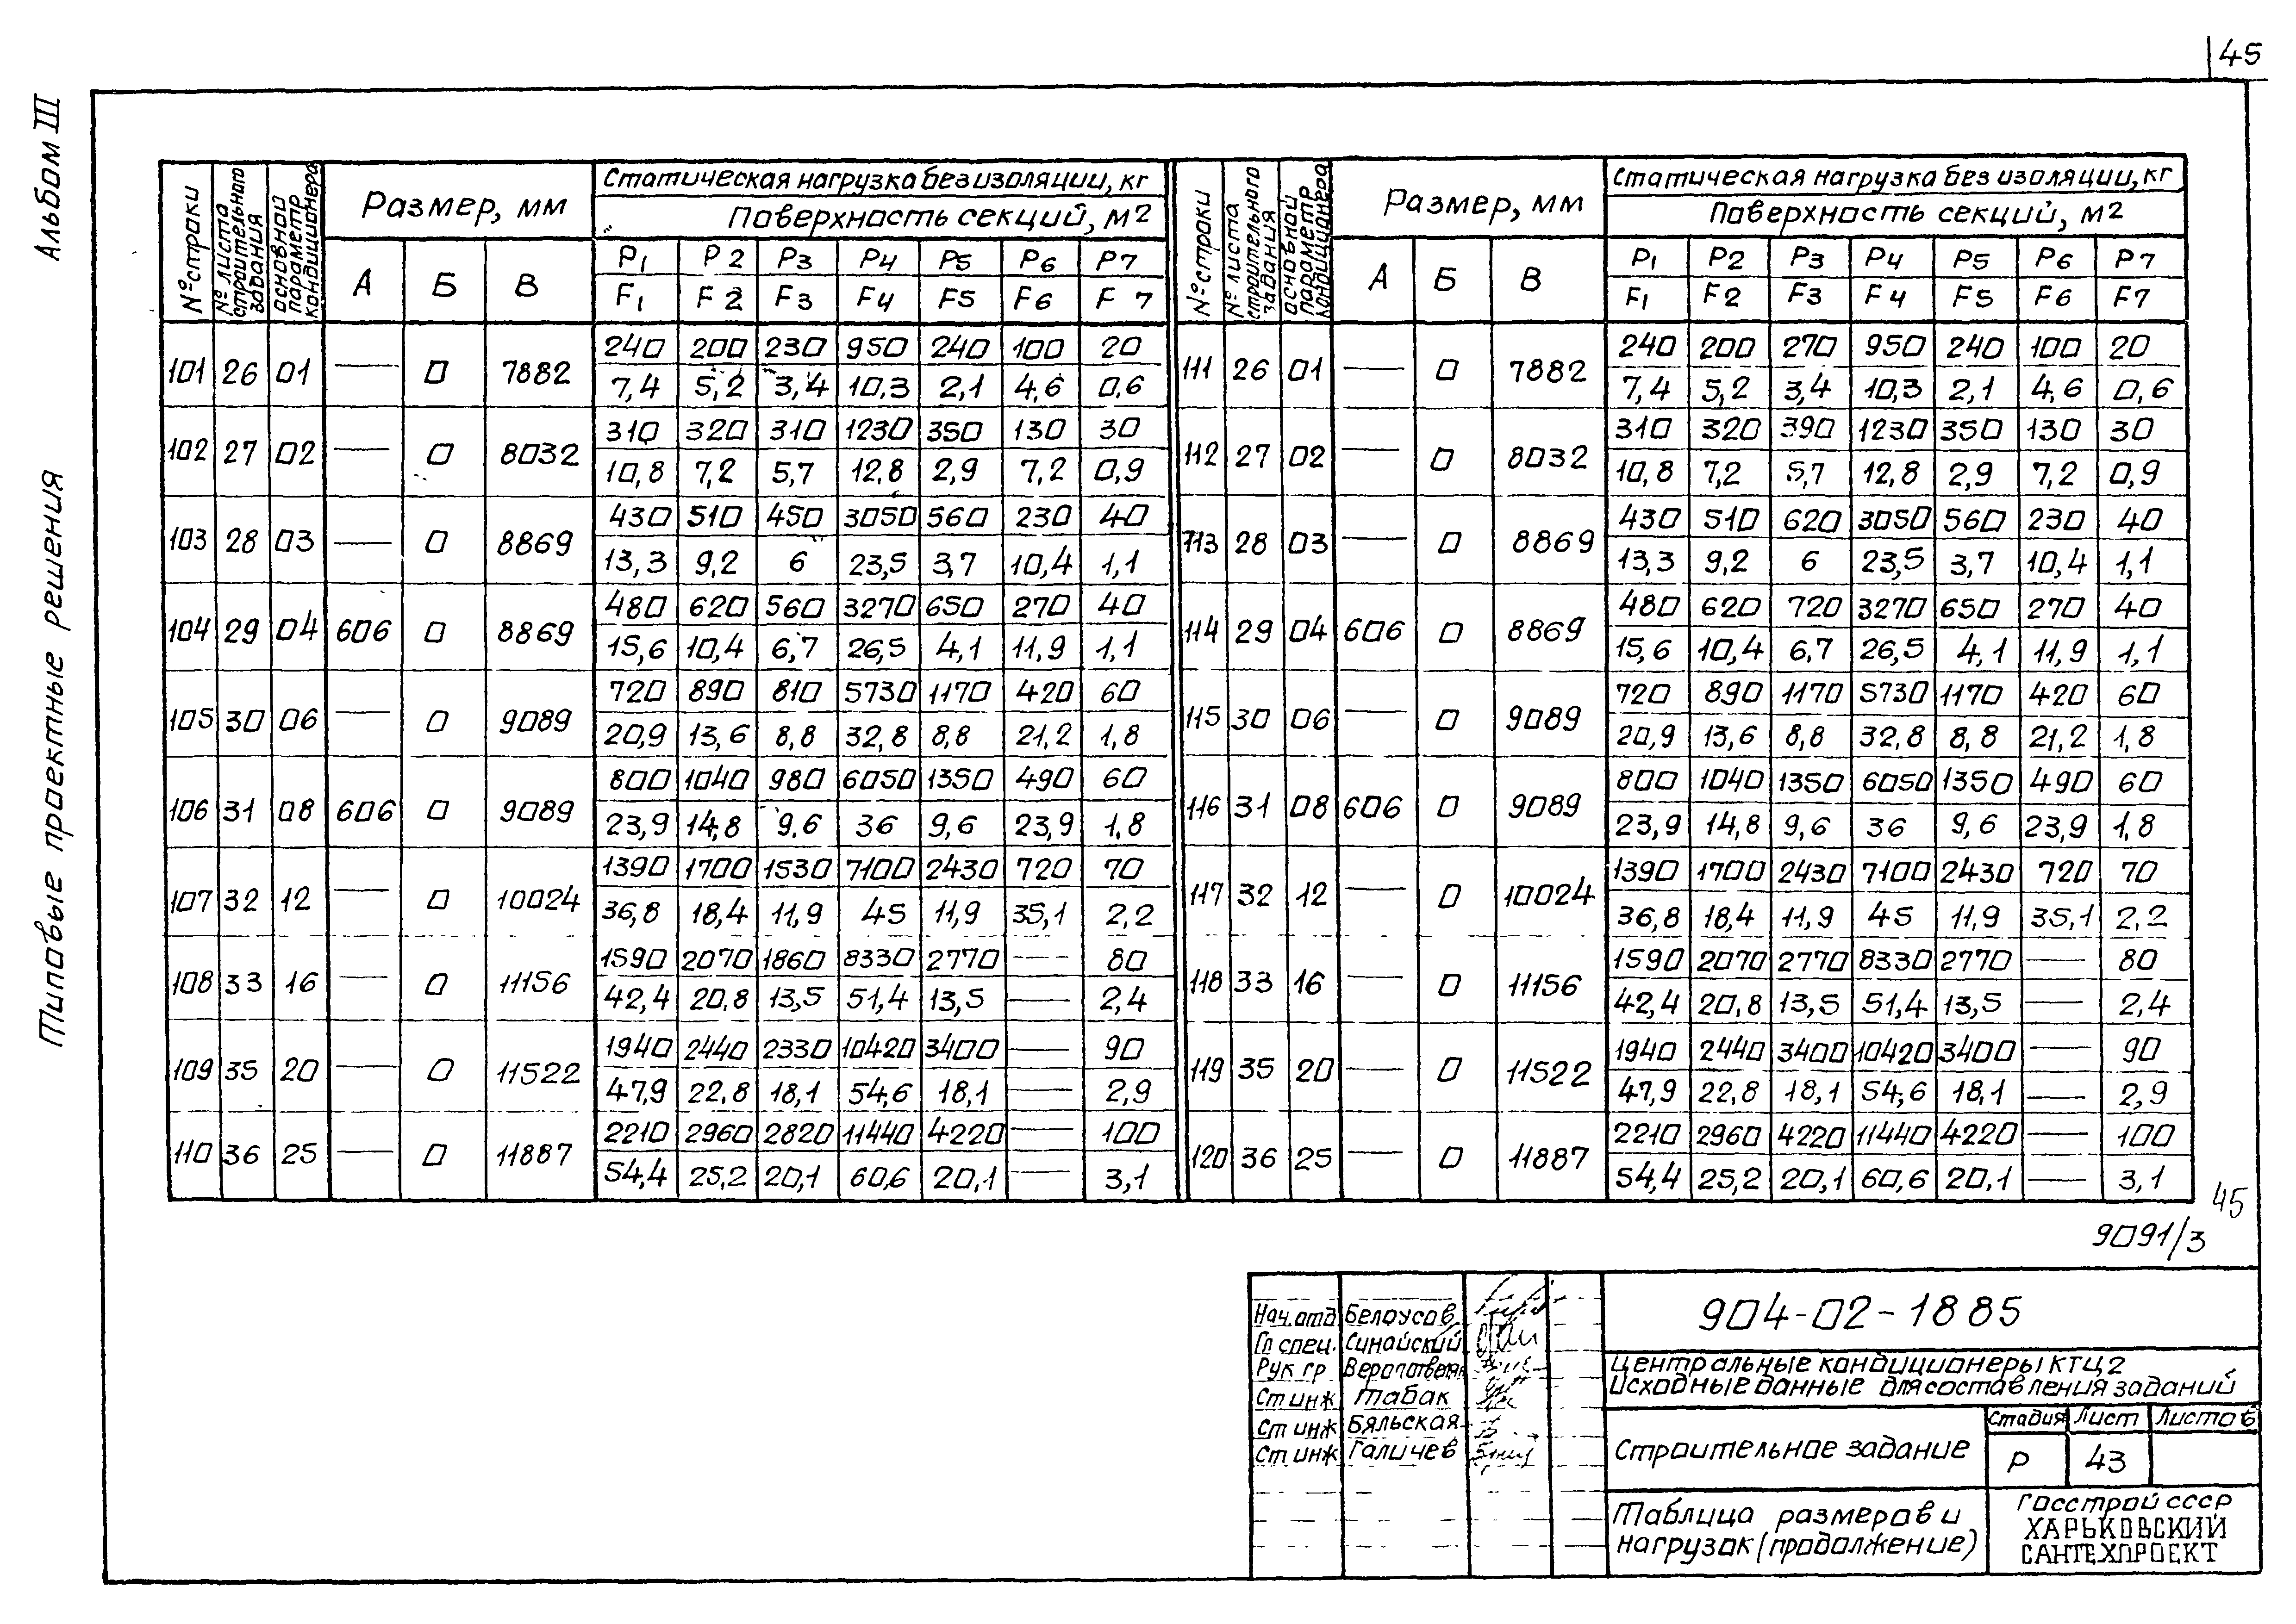 45
Альбом III
Типовые проектные решения
№ строки | № листа строительного задания | основной параметр кондиционера | Размер, мм | Статическая нагрузка без изоляции, кг
Поверхность секций, м2
А | Б | В | P1 | P2 | P3 | P4 | P5 | P6 | P7
F1 | F2 | F3 | F4 | F5 | F6 | F7
101 | 26 | 01 | — | 0 | 7882 | 240 | 200 | 230 | 950 | 240 | 100 | 20
7,4 | 5,2 | 3,4 | 10,3 | 2,1 | 4,6 | 0,6
102 | 27 | 02 | — | 0 | 8032 | 310 | 320 | 310 | 1230 | 350 | 130 | 30
10,8 | 7,2 | 5,7 | 12,8 | 2,9 | 7,2 | 0,9
103 | 28 | 03 | — | 0 | 8869 | 430 | 510 | 450 | 3050 | 560 | 230 | 40
13,3 | 9,2 | 6 | 23,5 | 3,7 | 10,4 | 1,1
104 | 29 | 04 | 606 | 0 | 8869 | 480 | 620 | 560 | 3270 | 650 | 270 | 40
15,6 | 10,4 | 6,7 | 26,5 | 4,1 | 11,9 | 1,1
105 | 30 | 06 | — | 0 | 9089 | 720 | 890 | 810 | 5730 | 1170 | 420 | 60
20,9 | 13,6 | 8,8 | 32,8 | 8,8 | 21,2 | 1,8
106 | 31 | 08 | 606 | 0 | 9089 | 800 | 1040 | 980 | 6050 | 1350 | 490 | 60
23,9 | 14,8 | 9,6 | 36 | 9,6 | 23,9 | 1,8
107 | 32 | 12 | — | 0 | 10024 | 1390 | 1700 | 1530 | 7100 | 2430 | 720 | 70
36,8 | 18,4 | 11,9 | 45 | 11,9 | 35,1 | 2,2
108 | 33 | 16 | — | 0 | 11156 | 1590 | 2070 | 1860 | 8330 | 2770 | — | 80
42,4 | 20,8 | 13,5 | 51,4 | 13,5 | — | 2,4
109 | 35 | 20 | — | 0 | 11522 | 1940 | 2440 | 2330 | 10420 | 3400 | — | 90
47,9 | 22,8 | 18,1 | 54,6 | 18,1 | — | 2,9
110 | 36 | 25 | — | 0 | 11887 | 2210 | 2960 | 2820 | 11440 | 4220 | — | 100
54,4 | 25,2 | 20,1 | 60,6 | 20,1 | — | 3,1
№ строки | № листа строительного задания | основной параметр кондиционера | Размер, мм | Статическая нагрузка без изоляции, кг
Поверхность секций, м2
А | Б | В | P1 | P2 | P3 | P4 | P5 | P6 | P7
F1 | F2 | F3 | F4 | F5 | F6 | F7
111 | 26 | 01 | — | 0 | 7882 | 240 | 200 | 270 | 950 | 240 | 100 | 20
7,4 | 5,2 | 3,4 | 10,3 | 2,1 | 4,6 | 0,6
112 | 27 | 02 | — | 0 | 8032 | 310 | 320 | 390 | 1230 | 350 | 130 | 30
10,8 | 7,2 | 5,7 | 12,8 | 2,9 | 7,2 | 0,9
113 | 28 | 03 | — | 0 | 8869 | 430 | 510 | 620 | 3050 | 560 | 230 | 40
13,3 | 9,2 | 6 | 23,5 | 3,7 | 10,4 | 1,1
114 | 29 | 04 | 606 | 0 | 8869 | 480 | 620 | 720 | 3270 | 650 | 270 | 40
15,6 | 10,4 | 6,7 | 26,5 | 4,1 | 11,9 | 1,1
115 | 30 | 06 | — | 0 | 9089 | 720 | 890 | 1170 | 5730 | 1170 | 420 | 60
20,9 | 13,6 | 8,8 | 32,8 | 8,8 | 21,2 | 1,8
116 | 31 | 08 | 606 | 0 | 9089 | 800 | 1040 | 1350 | 6050 | 1350 | 490 | 60
23,9 | 14,8 | 9,6 | 36 | 9,6 | 23,9 | 1,8
117 | 32 | 12 | — | 0 | 10024 | 1390 | 1700 | 2430 | 7100 | 2430 | 720 | 70
36,8 | 18,4 | 11,9 | 45 | 11,9 | 35,1 | 2,2
118 | 33 | 16 | — | 0 | 11156 | 1590 | 2070 | 2770 | 8330 | 2770 | — | 80
42,4 | 20,8 | 13,5 | 51,4 | 13,5 | — | 2,4
119 | 35 | 20 | — | 0 | 11522 | 1940 | 2440 | 3400 | 10420 | 3400 | — | 90
47,9 | 22,8 | 18,1 | 54,6 | 18,1 | — | 2,9
120 | 36 | 25 | — | 0 | 11887 | 2210 | 2960 | 4220 | 11440 | 4220 | — | 100
54,4 | 25,2 | 20,1 | 60,6 | 20,1 | — | 3,1
45
9091/3
Нач. отд Белоусов
Гл спец. Синайский
Рук гр
Ст инж Табак
Ст инж Бяльская
Ст инж Галичев
904-02-18 85
Центральные кондиционеры КТЦ2
Исходные данные для составления заданий
Строительное задание
Стадия Лист Листов
Р 43
Таблица размеров и
нагрузок (продолжение)
Госстрой СССР
ХАРЬКОВСКИЙ
САНТЕХПРОЕКТ